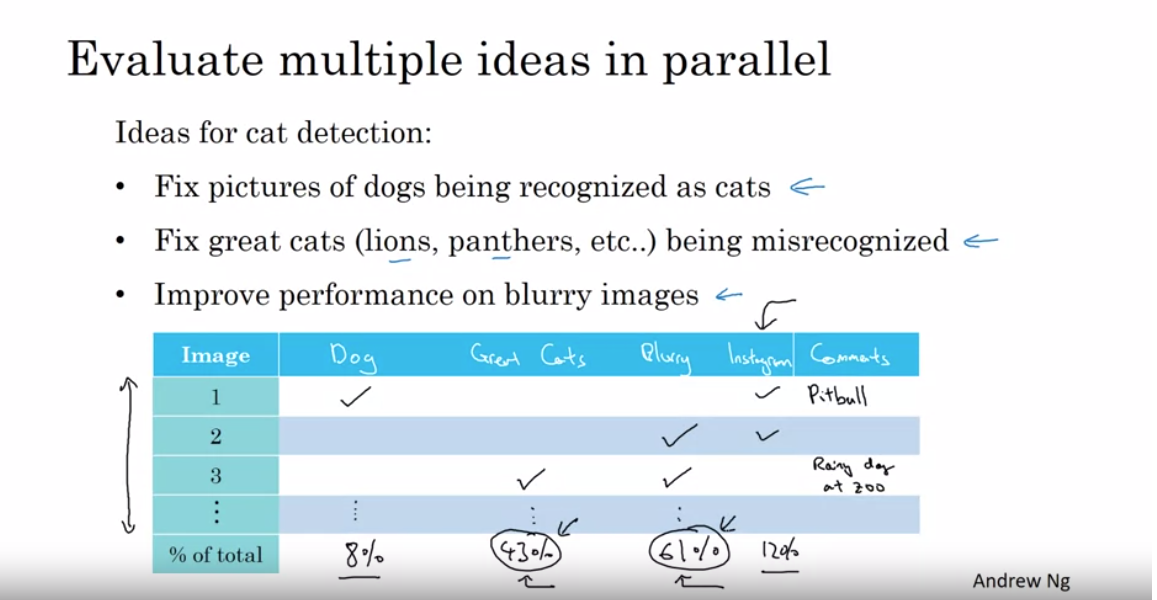 Evaluate multiple ideas in parallel
Ideas for cat detection:
• Fix pictures of dogs being recognized as cats
• Fix great cats (lions, panthers, etc..) being misrecognized
• Improve performance on blurry images
Image Dog Great Cats Blurry Instagram Comments
1 ✓ ✓ Pitbull
2 ✓ ✓
3 ✓ ✓ Rainy day
at zoo
⋮ ⋮ ⋮ ⋮
% of total 8% 43% 61% 12%
Andrew Ng